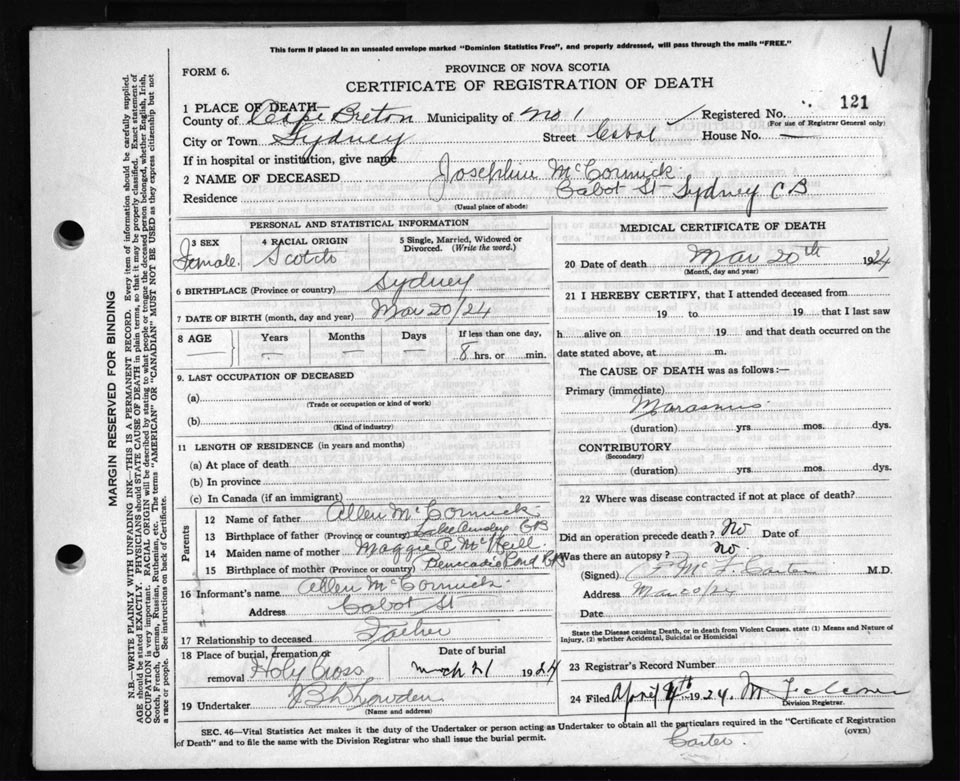 This form if placed in an unsealed envelope marked "Dominion Statistics Free", and properly addressed, will pass through the mails "FREE."
FORM 6.
PROVINCE OF NOVA SCOTIA
CERTIFICATE OF REGISTRATION OF DEATH
1 PLACE OF DEATH
County of Cape Breton Municipality of No 1 Registered No. 121
(For use of Registrar General only)
City or Town Sydney Street Cabot House No. —
If in hospital or institution, give name
2 NAME OF DECEASED Josephine McCormick
Residence Cabot St Sydney C B
(Usual place of abode)
PERSONAL AND STATISTICAL INFORMATION
3 SEX Female
4 RACIAL ORIGIN Scotch
5 Single, Married, Widowed or Divorced. (Write the word.)
6 BIRTHPLACE (Province or country) Sydney
7 DATE OF BIRTH (month, day and year) Mar 20/24
8 AGE Years — Months — Days — If less than one day, 8 hrs. or min.
9. LAST OCCUPATION OF DECEASED
(a)
(Trade or occupation or kind of work)
(b)
(Kind of industry)
11 LENGTH OF RESIDENCE (in years and months)
(a) At place of death
(b) In province
(c) In Canada (if an immigrant)
Parents
12 Name of father Allen McCormick
13 Birthplace of father (Province or country) Lake Ainslie CB
14 Maiden name of mother Maggie McNeill
15 Birthplace of mother (Province or country) Pond
16 Informant's name Allen McCormick
Address Cabot St
17 Relationship to deceased Father
18 Place of burial, cremation or removal Holy Cross
Date of burial Mch 21 1924
19 Undertaker
(Name and address)
MEDICAL CERTIFICATE OF DEATH
20 Date of death Mar 20th 1924
(Month, day and year)
21 I HEREBY CERTIFY, that I attended deceased from
19 to 19 that I last saw
h alive on 19 and that death occurred on the
date stated above, at m.
The CAUSE OF DEATH was as follows:—
Primary (immediate)
Marasmus
(duration) yrs. mos. dys.
CONTRIBUTORY
(Secondary)
(duration) yrs. mos. dys.
22 Where was disease contracted if not at place of death?
Did an operation precede death? No Date of
Was there an autopsy? no.
(Signed) M.D.
Address Mar 20/24
Date
State the Disease causing Death, or in death from Violent Causes, state (1) Means and Nature of
Injury, (2) whether Accidental, Suicidal or Homicidal
23 Registrar's Record Number
24 Filed April 4th 1924.
Division Registrar.
SEC. 46—Vital Statistics Act makes it the duty of the Undertaker or person acting as Undertaker to obtain all the particulars required in the "Certificate of Registration
of Death" and to file the same with the Division Registrar who shall issue the burial permit.
(OVER)
Carter
MARGIN RESERVED FOR BINDING
N.B.—WRITE PLAINLY WITH UNFADING INK—THIS IS A PERMANENT RECORD. Every item of information should be carefully supplied.
AGE should be stated EXACTLY. PHYSICIANS should STATE CAUSE OF DEATH in plain terms, so that it may be properly classified. Exact statement of
OCCUPATION is very important. RACIAL ORIGIN will be described by stating to what people or tongue the deceased person belonged, whether English, Irish,
Scotch, French, German, Russian, Ruthenian, etc. The terms "AMERICAN" or "CANADIAN" MUST NOT BE USED as they express citizenship but not
a race or people. See instructions on back of Certificate.